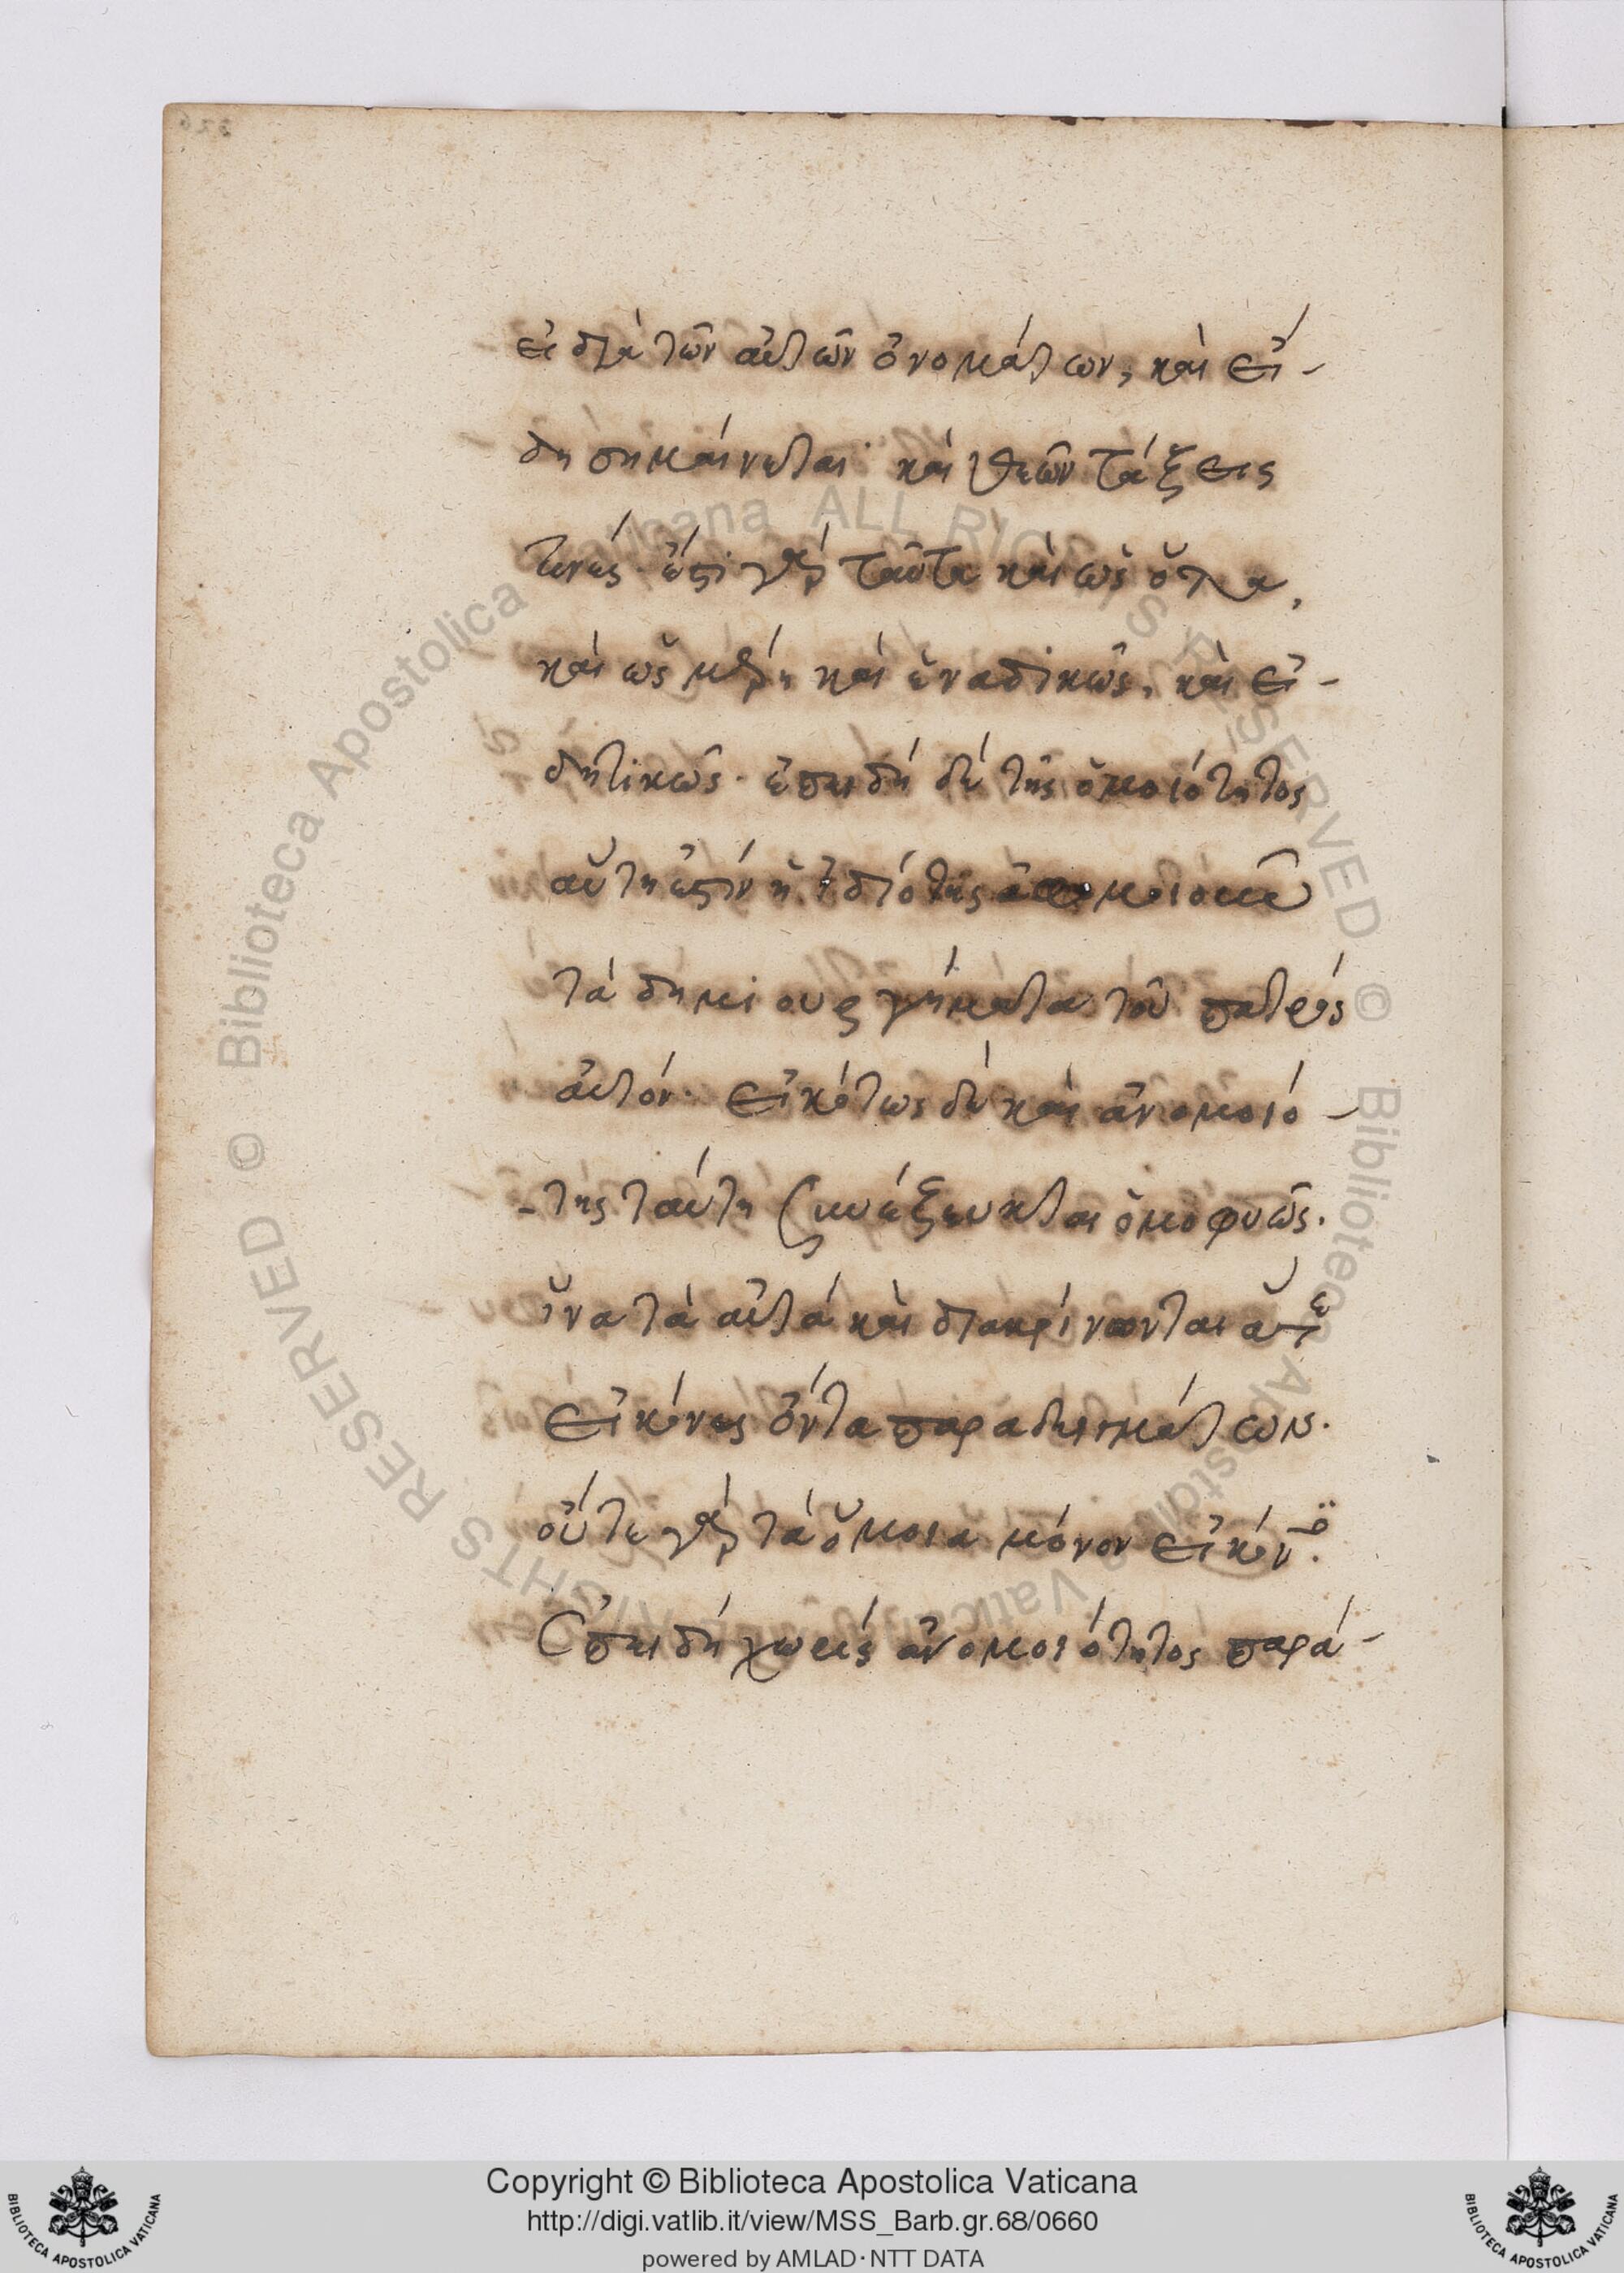 εἰ διὰ τῶν αὐτῶν ὀνομάτων, καὶ εἴ-
δη σημαίνεται· καὶ θεῶν τάξεις
τινές· ἔστι γὰρ ταῦτα καὶ ὡς ὅλα,
καὶ ὡς μέρη καὶ ἑναδικῶς, καὶ εἰ-
δητικῶς· ἐπειδὴ δὲ τῆς ὁμοιότητος
αὕτη ἐστὶν ἡ ἰδιότης ἀφομοιοῦν
τὰ δημιουργήματα τοῦ πατρὸς
αὐτόν· εἰκότως δὲ καὶ ἀνομοιό-
-της ταύτη συνέζευκται ὁμοφυῶς.
ἵνα τὰ αὐτὰ καὶ διακρίνωνται ἅτε
εἰκόνες ὄντα παραδειγμάτων.
οὔτε γὰρ τὰ ὅμοια μόνον εἰκόν
Ἐπειδὴ χωρὶς ἀνομοιότητος παρά-
Biblioteca Apostolica Vaticana ALL RIGHTS RESERVED ©
Biblioteca Apostolica Vaticana ALL RIGHTS RESERVED ©
Copyright © Biblioteca Apostolica Vaticana
http://digi.vatlib.it/view/MSS_Barb.gr.68/0660
powered by AMLAD·NTT DATA
BIBLIOTECA APOSTOLICA VATICANA
BIBLIOTECA APOSTOLICA VATICANA